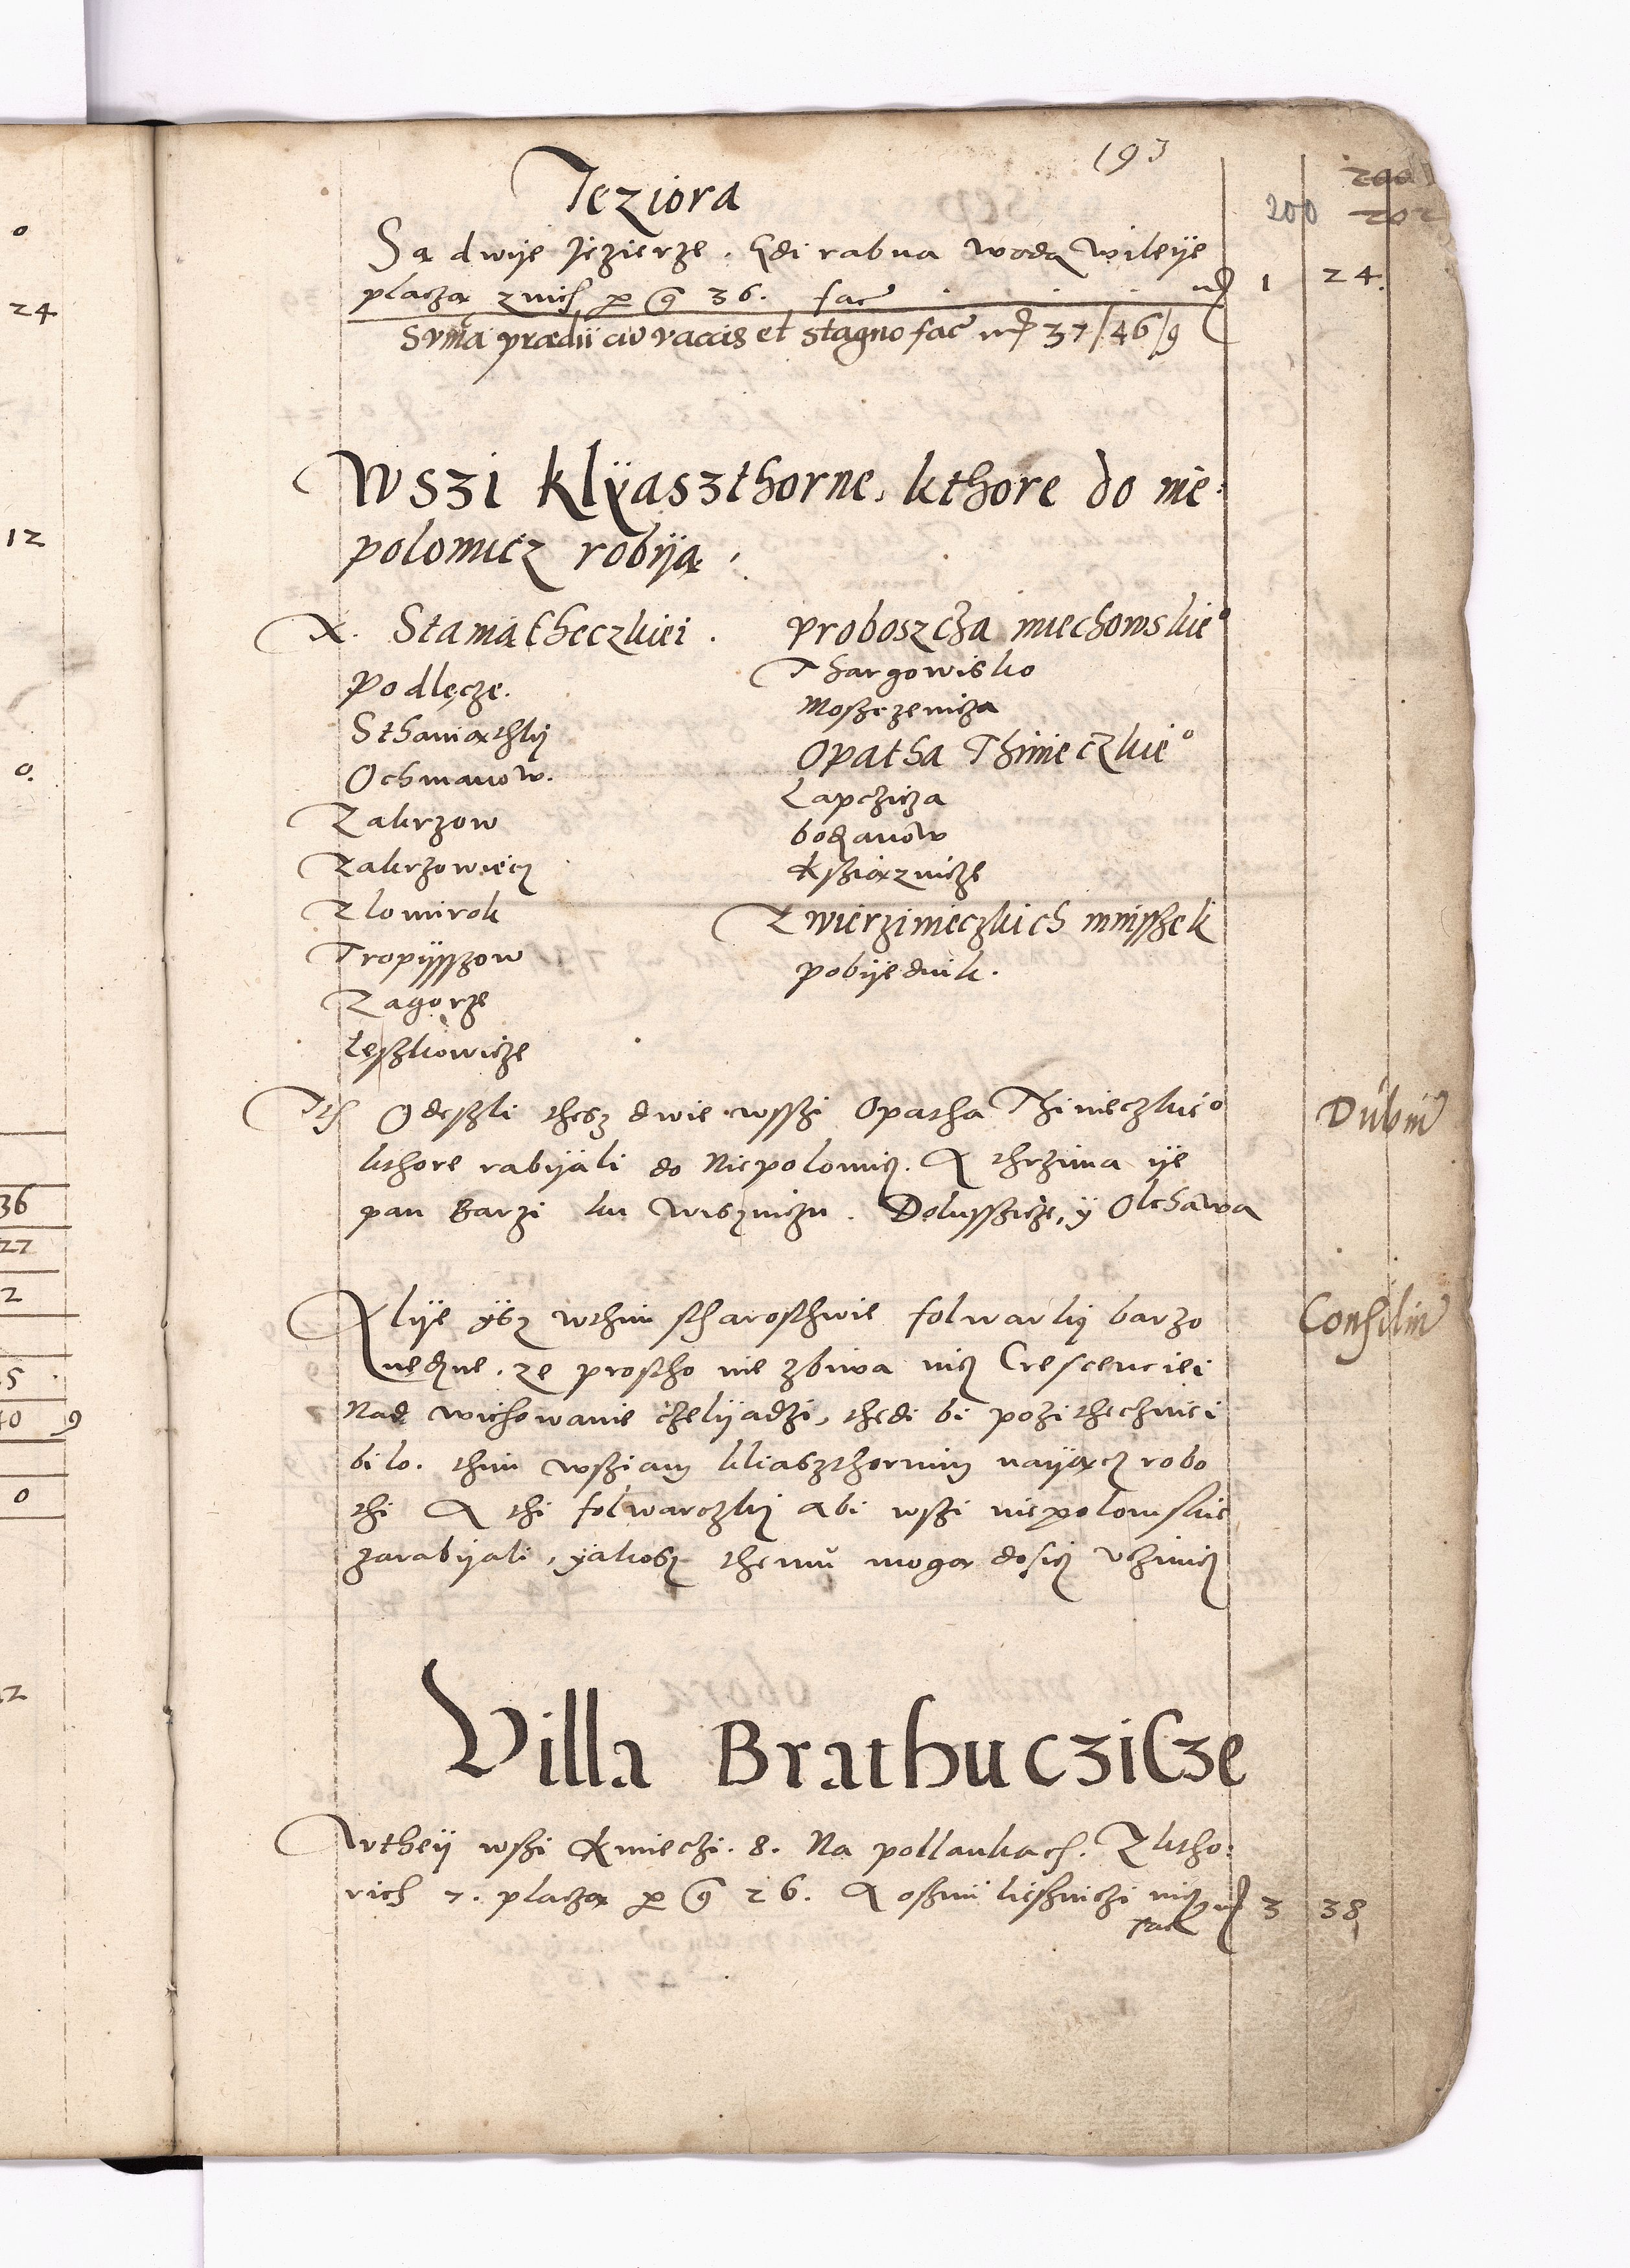 193
200
200
202
Jeziora
Są dwije Jezierze. Gdi rabna woda wileije
placzą znich per g 36. fac mr 1 24.
Suma prædii cu vaccis et stagno fac mr 37/46/9
Wszi klÿaszthorne, kthore do nie-
polomicz robiją.
X. Staniątheczkiei.
Podlęcze.
Sthaniąthky
Ochmanow.
Zakrzow
Zakrzowiecz
Zlomirok
Tropijszow
Zagorze
Lęszkowicze
Proboszcza miechowskie°
Thargowisko
Moszczenicza
Opatha Thinieczkie°
Lapczicza
bodzanow
Kxsziąznicze
Zwierzinieczkich mniszek
pobijednik.
Ith Odeszli thesz dwie wsszi Opatha Thinieczkie°
kthore rabijali do Niepolomicz. A thrzima ije
pan Barzi ku Wisniczu. Dolusszicze, y Olchawa
Dubiu
Alije ysz wthim stharosthwie folwarky barzo
nedzne, ze prostho nie zbiwa nicz Crescenciei
Nad wichowanie czelijadzi, thedi bi pozithecznei
bilo. thim wsziam kliaszthornim naijącz robo
thi A thi folwarczky abi wszi niepolomskie
zarabijali, yakosz themu mogą dosicz vczinicz
Consiliu
Villa Brathucziсze
Wtheij wszi Kmieczi. 8. Na pollankach. Zktho-
rich 7. placzą per g 26. A osmi liesniczi nicz
fac mr 3 38